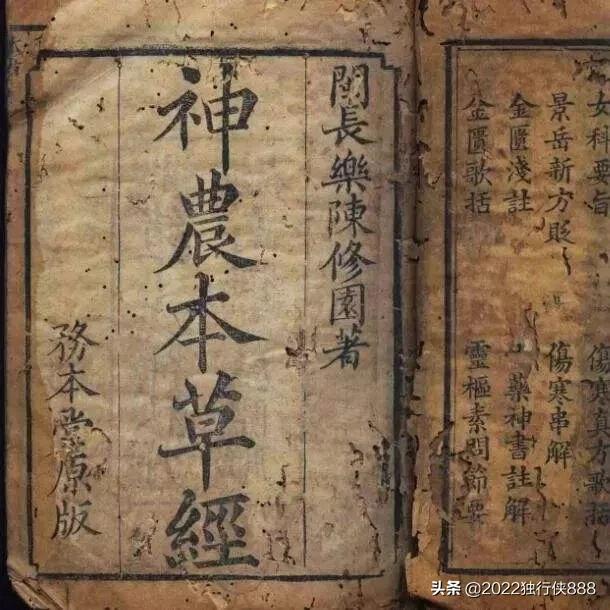 女科要旨 傷寒真方歌括
景岳新方貶 傷寒串解
金匱淺註 藥神書註解
金匱歌括 靈樞素問節要
閩長樂陳修園著
神農本草經
務本堂原版
头条 @2022独行侠888